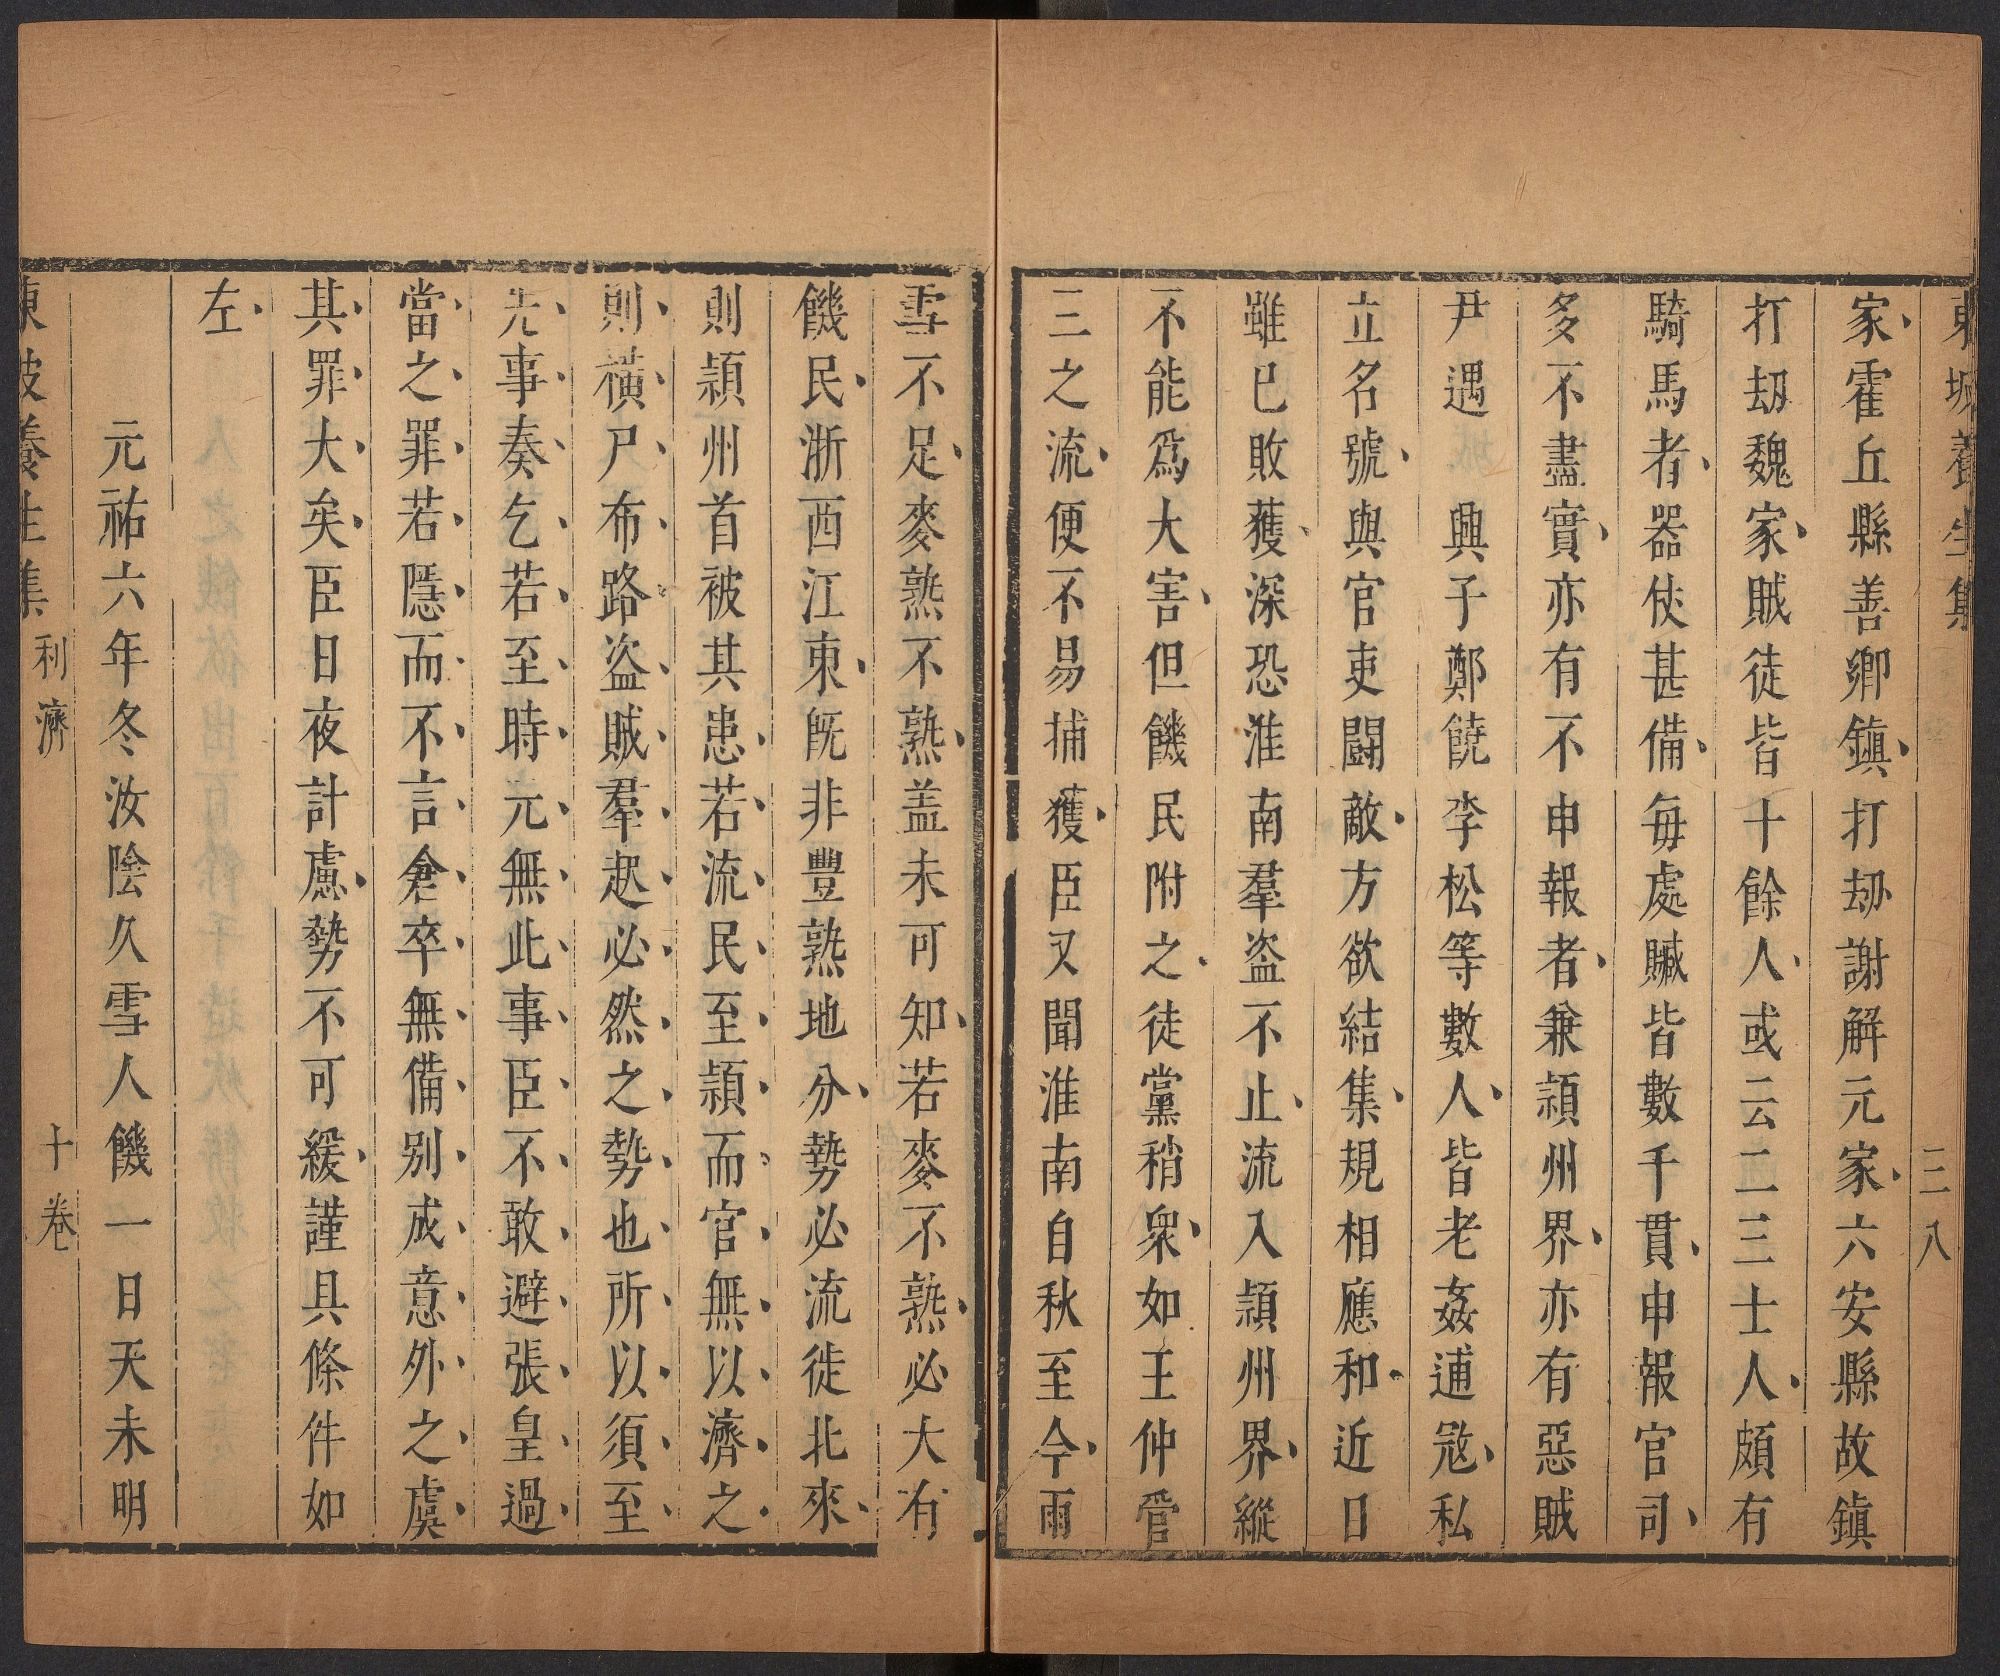 東坡養生集 三八
家霍丘縣善鄉鎮打刼謝解元家六安縣故鎮
打刼魏家賊徒皆十餘人或云二三士人頗有
騎馬者器仗甚備每處贓皆數千貫申報官司
多不盡實亦有不申報者兼潁州界亦有惡賊
尹遇 興子鄭饒李松等數人皆老姦逋寇私
立名號與官吏鬬敵方欲結集規相應和近日
雖已敗獲深恐淮南羣盗不止流入潁州界縱
不能爲大害但饑民附之徒黨稍衆如王仲管
三之流便不易捕獲臣又聞淮南自秋至今雨
雪不足麥熟不熟盖未可知若麥不熟必大有
饑民浙西江東既非豐熟地分勢必流徙北來
則潁州首被其患若流民至潁而官無以濟之
則橫尸布路盗賊羣起必然之勢也所以須至
先事奏乞若至時元無此事臣不敢避張皇過
當之罪若隱而不言倉卒無備别成意外之虞
其罪大矣臣日夜計慮勢不可緩謹具條件如
左
元祐六年冬汝陰久雪人饑一日天未明
東坡養生集 利濟 十卷